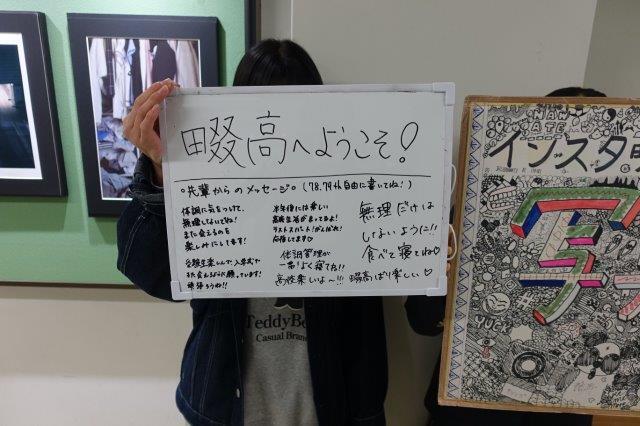 畷高へようこそ!
◦先輩からのメッセージ◦(78.79th自由に書いてね!)
体調に気をつけて、
無理しないでね!
また会えるのを
楽しみにしてます!
受験生楽しんで、入学式で
また会えるように願っています!
頑張ろうね!!
半年後には楽しい
高校生活がまってるよ!
ラストスパート!がんばれ!
応援してます♡
体調管理が
一番!よく寝てね!!
高校楽しいよ〜!!!
無理だけは
しないように!!
食べて寝てね♡
畷高ばり楽しい♡
TeddyBe
Casual Bran
インスタ
写
YUCK